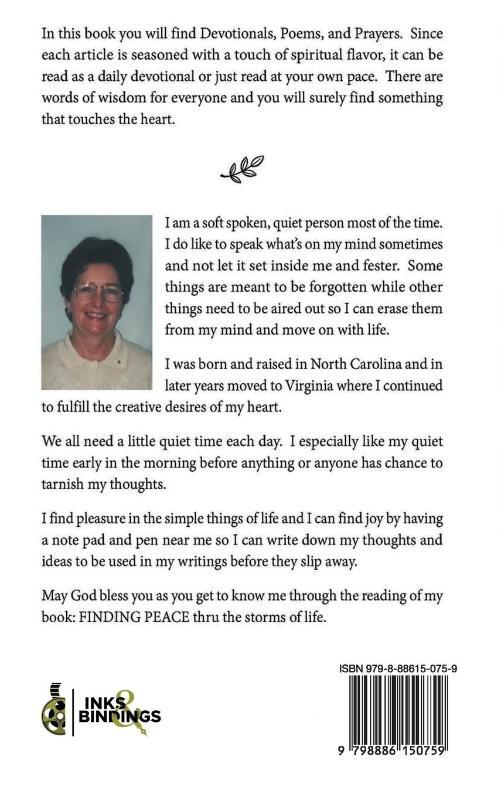 In this book you will find Devotionals, Poems, and Prayers. Since
each article is seasoned with a touch of spiritual flavor, it can be
read as a daily devotional or just read at your own pace. There are
words of wisdom for everyone and you will surely find something
that touches the heart.
I am a soft spoken, quiet person most of the time.
I do like to speak what's on my mind sometimes
and not let it set inside me and fester. Some
things are meant to be forgotten while other
things need to be aired out so I can erase them
from my mind and move on with life.
I was born and raised in North Carolina and in
later years moved to Virginia where I continued
to fulfill the creative desires of my heart.
We all need a little quiet time each day. I especially like my quiet
time early in the morning before anything or anyone has chance to
tarnish my thoughts.
I find pleasure in the simple things of life and I can find joy by having
a note pad and pen near me so I can write down my thoughts and
ideas to be used in my writings before they slip away.
May God bless you as you get to know me through the reading of my
book: FINDING PEACE thru the storms of life.
INKS &
BINDINGS
ISBN 979-8-88615-075-9
9 798886 150759